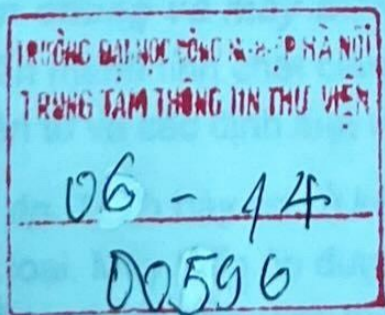 TRƯỜNG ĐẠI HỌC CÔNG NGHIỆP HÀ NỘI
TRUNG TÂM THÔNG TIN THƯ VIỆN
06 - 14
00596